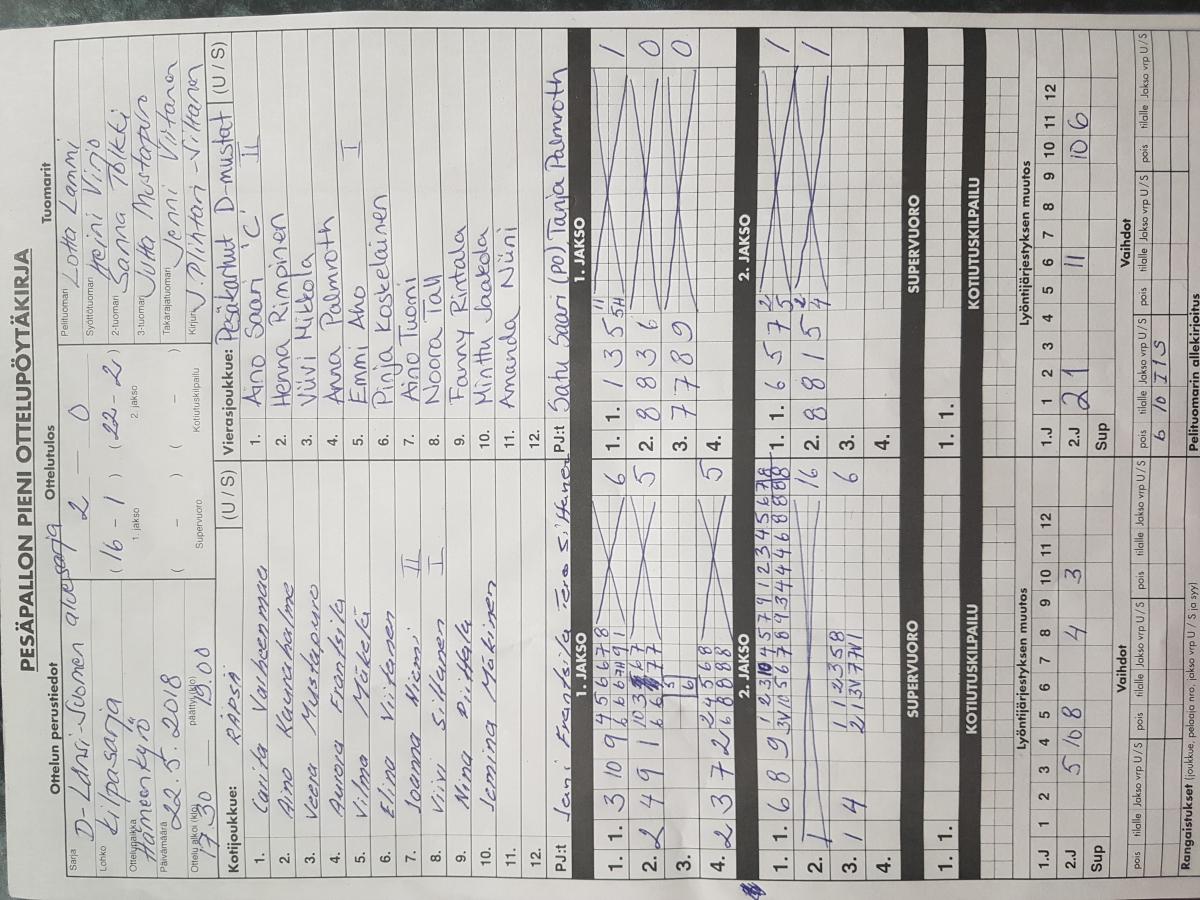 PESÄPALLON PIENI OTTELUPÖYTÄKIRJA
Ottelun perustiedot
Ottelutulos
Tuomarit
Sarja D-Länsi-Suomen aluesarja
Lohko Kilpasarja
Ottelupaikka Hämeenkyrö
Päivämäärä 22.5.2018
Ottelu alkoi (klo) 17.30 päättyi (klo) 19.00
2 — 0
(16 - 1) (22 - 2)
1. jakso 2. jakso
( - ) ( - )
Supervuoro Kotiutuskilpailu
Pelituomari Lotta Lammi
Syöttötuomari Heini Virjo
2-tuomari Sanna Tölkki
3-tuomari Jutta Mustapuro
Takarajatuomari Jenni Viitanen
Kirjuri J. Plihtari-Viitanen
Kotijoukkue: RÄPSÄ (U / S)
1. Carita Valkeenmaa
2. Aino Kaunahalme
3. Veera Mustapuro
4. Aurora Frantsila
5. Vilma Mäkelä
6. Elina Viitanen
7. Joanna Niemi II
8. Viivi Siltanen I
9. Nina Riittala
10. Jemina Mäkinen
11.
12.
PJ:t Jani Frantsila Tero Siltanen
Vierasjoukkue: Pesäkarhut D-mustat (U / S)
1. Aino Saari 'C' II
2. Henna Rimpinen
3. Viivi Mikkola
4. Anna Palmroth
5. Emmi Aho I
6. Pinja Kaskelainen
7. Aino Tuomi
8. Noora Tall
9. Fanny Rintala
10. Minttu Jaakola
11. Amanda Niini
12.
PJ:t Satu Saari (PO) Tanja Palmroth
1. JAKSO
1. JAKSO
1. 1. 3 10 9 6
2. 4 9 1 5
3.
4. 2 3 7 2 5
1. 1. 1 3 5 1
2. 8 8 3 6 0
3. 7 7 8 9 0
4.
2. JAKSO
2. JAKSO
1. 1. 6 8 9
2. 16
3. 1 4 6
4.
1. 1. 6 5 7 1
2. 8 8 1 5 1
3.
4.
SUPERVUORO
SUPERVUORO
1. 1.
1. 1.
KOTIUTUSKILPAILU
KOTIUTUSKILPAILU
Lyöntijärjestyksen muutos
Lyöntijärjestyksen muutos
1.J 1 2 3 4 5 6 7 8 9 10 11 12
2.J 5 10 8 4 3
Sup
1.J 1 2 3 4 5 6 7 8 9 10 11 12
2.J 2 1 11 10 6
Sup
Vaihdot
Vaihdot
pois tilalle Jakso vrp U / S pois tilalle Jakso vrp U / S pois tilalle Jakso vrp U / S pois tilalle Jakso vrp U / S
pois tilalle Jakso vrp U / S pois tilalle Jakso vrp U / S pois tilalle Jakso vrp U / S pois tilalle Jakso vrp U / S
6 10 II S
Rangaistukset (joukkue, pelaaja nro, jakso vrp U / S ja syy)
Pelituomarin allekirjoitus